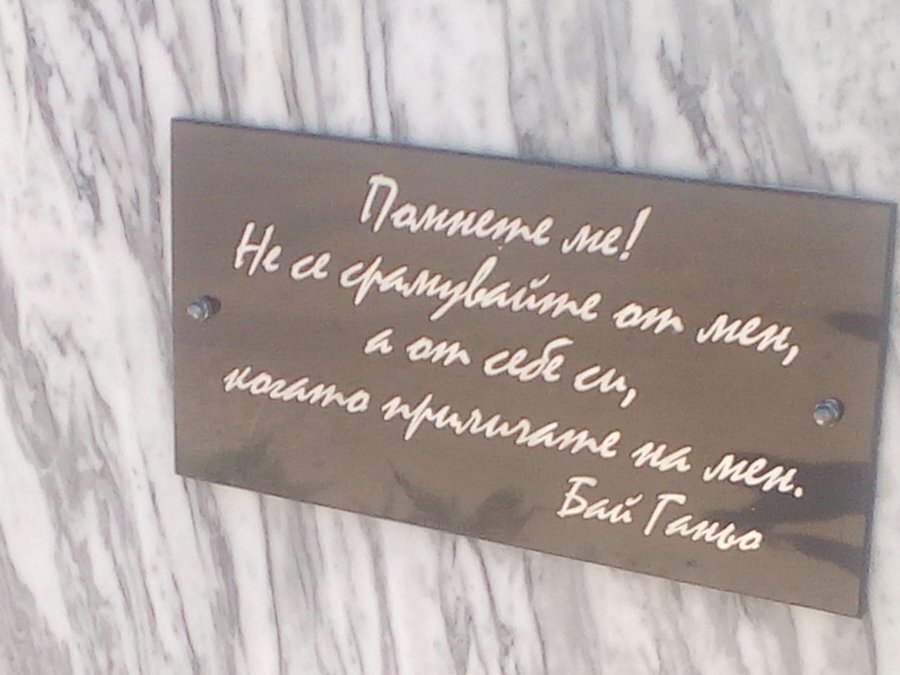 Помнете ме!
Не се срамувайте от мен,
а от себе си,
когато приличате на мен.
Бай Ганьо